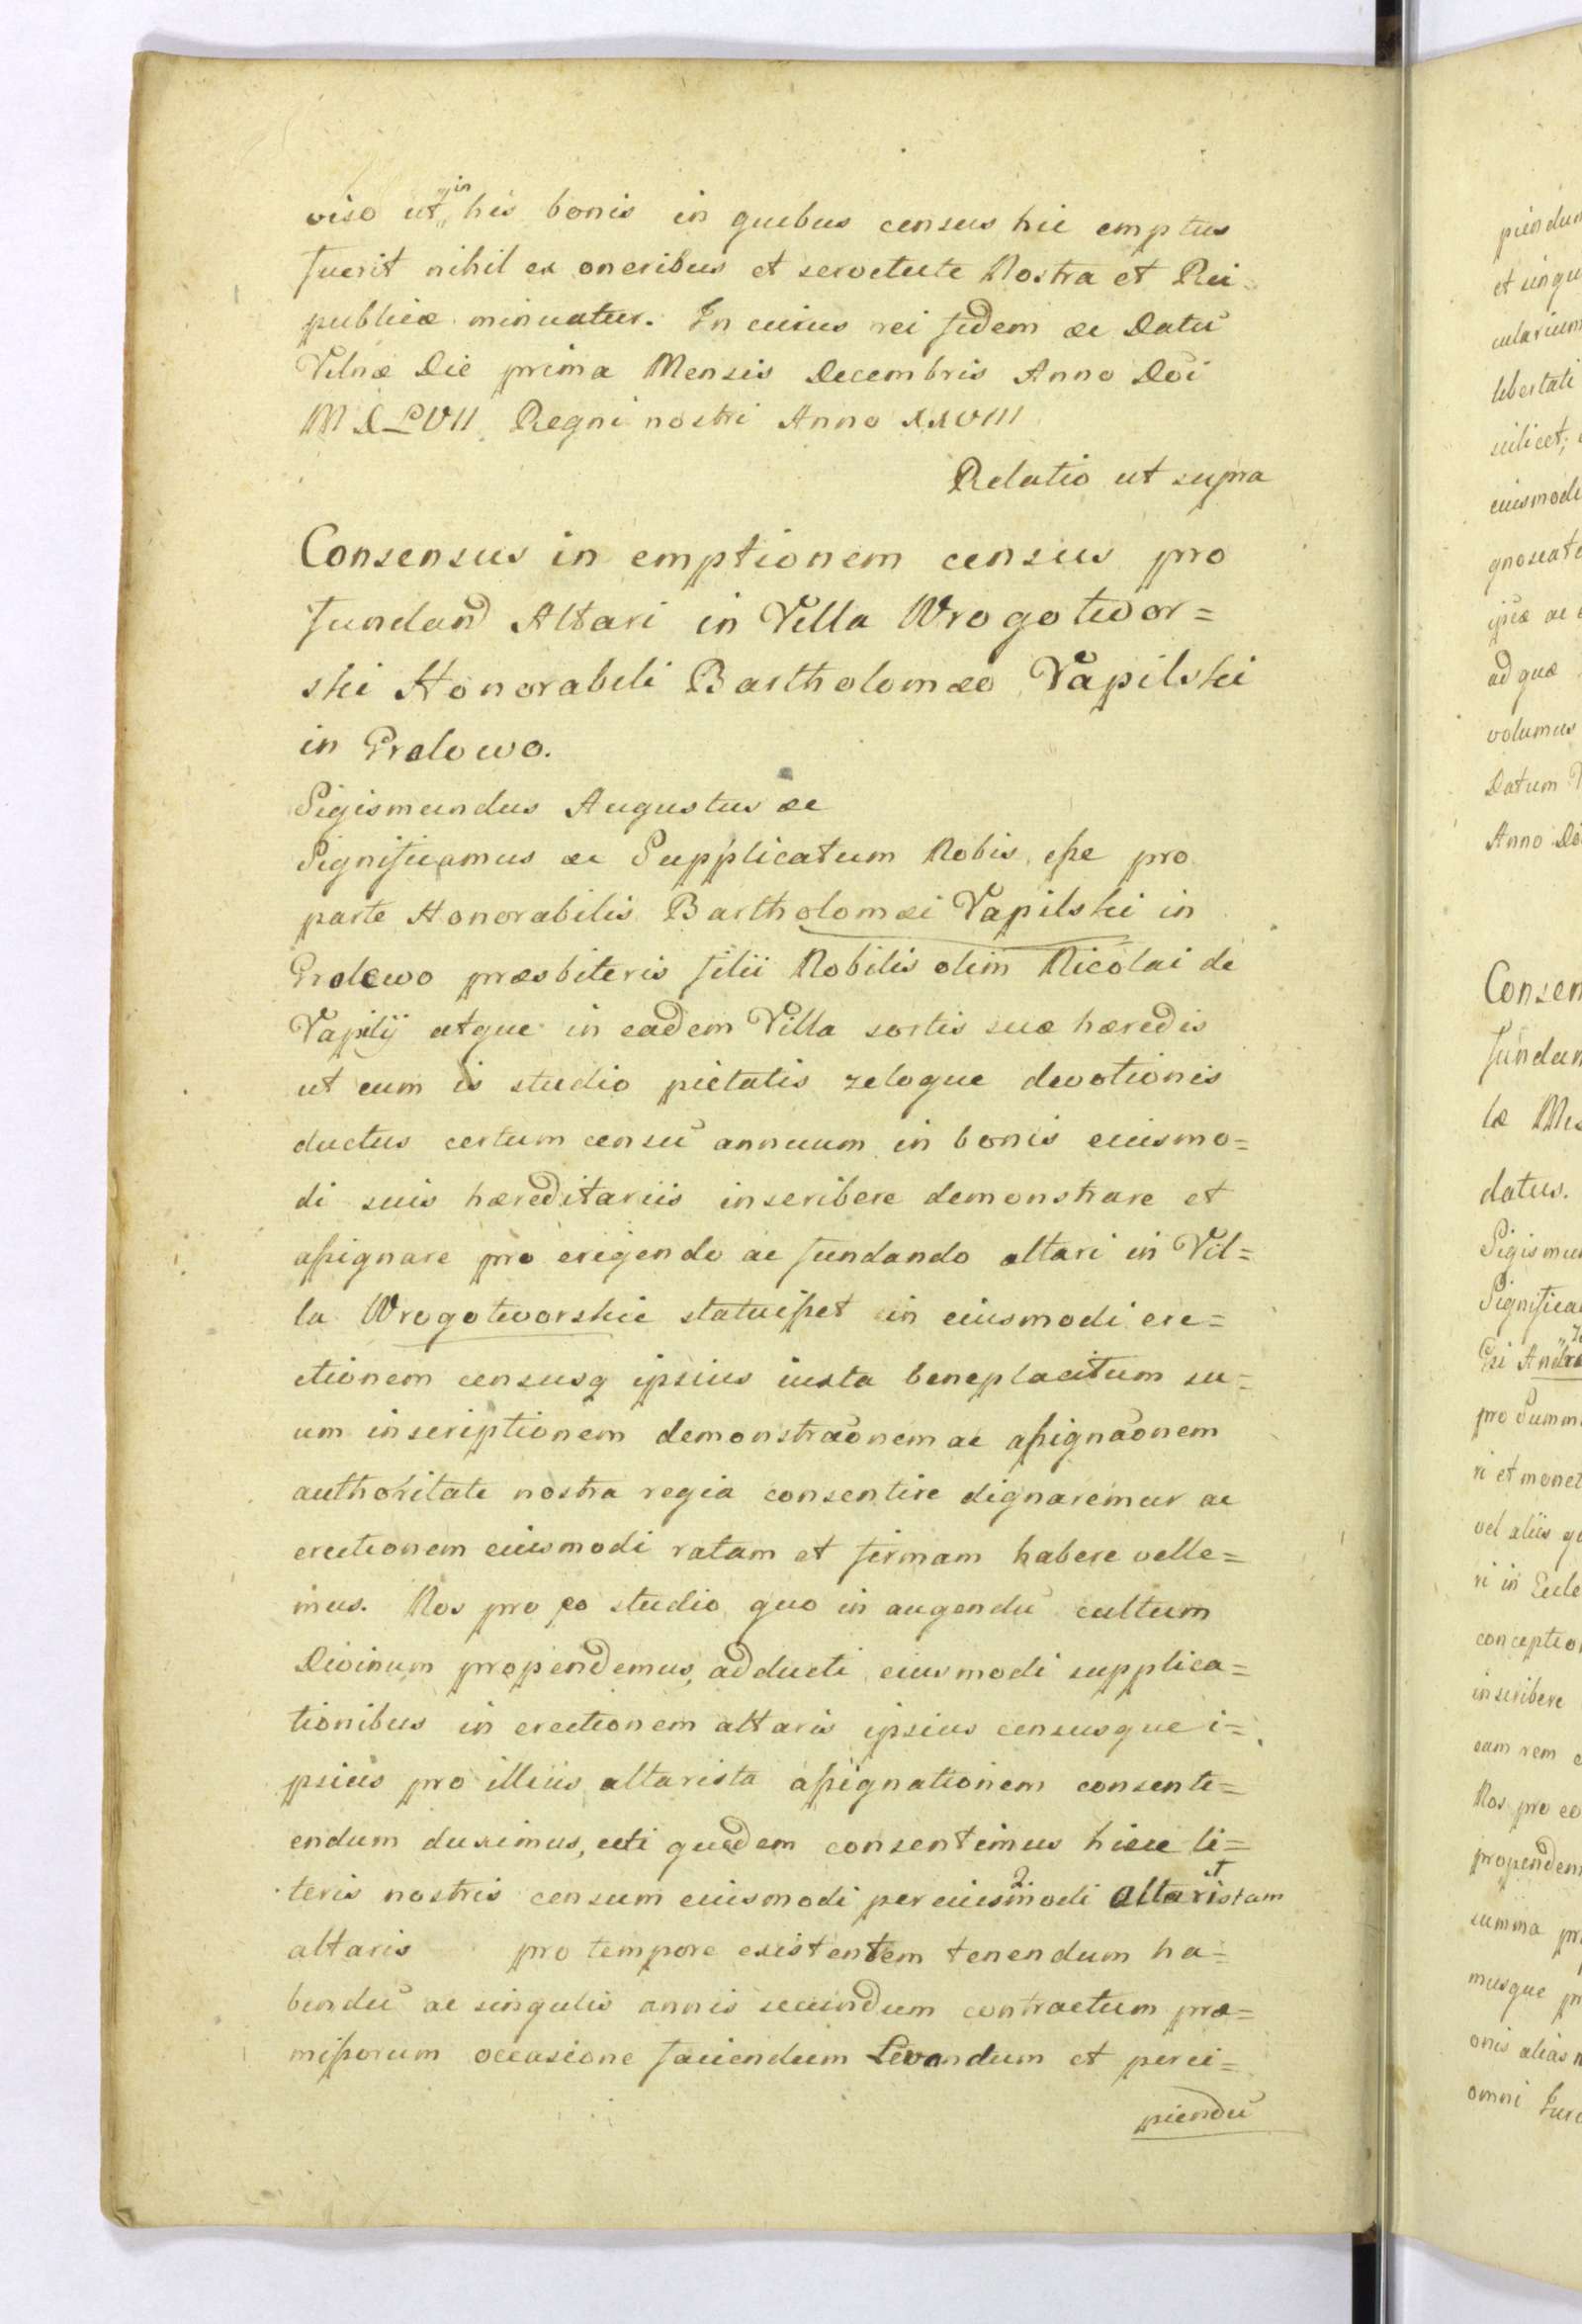 viso ut in his bonis in quibus census hic emptus
fuerit nihil ex oneribus et servitute Nostra et Rei-
publicæ minuatur. In cuius rei fidem &c Datū
Vilnæ Die prima Mensis Decembris Anno Dōi
MDLVII Regni nostri Anno XXVIII
Relatio ut supra
Consensus in emptionem census pro
fundand Altari in Villa Wrogotwor=
ski Honorabili Bartholomæo Vapilski
in Orlowo.
Sigismundus Augustus &c
Significamus &c Supplicatum Nobis eße pro
parte Honorabilis Bartholomæi Vapilski in
præsbiteris filii Nobilis olim Nicolai de
Vapilÿ atque in eadem Villa sortis suæ hæredis
ut cum is studio pietatis zeloque devotionis
ductus certum censū annuum in bonis eiusmo=
di suis hæreditariis inscribere demonstrare et
aßignare pro erigendo ac fundando altari in Vil=
la Wrogotworskie statuißet in eiusmodi ere=
ctionem censusq ipsius iuxta beneplacitum su=
um inscriptionem demonstraōnem ac aßignaōnem
authoritate nostra regia consentire dignaremur ac
erectionem eiusmodi ratam et firmam habere velle=
mus. Nos pro eo studio quo in augendū cultum
Divinum propendemus, adducti eiusmodi supplica=
tionibus in erectionem altaris ipsius censusque i=
psius pro illius altarista aßignationem consenti=
endum duximus, uti quidem consentimus hisce li=
teris nostris censum eiusmodi per eiusmodi altaristam
altaris pro tempore existentem tenendum ha=
bendū ac singulis annis secundum contractum præ=
mißorum occasione faciendum Levandum et perci=
piendū

piendum
et singu
cularium
libertati
scilicet;
eiusmodi
gnoscat
ipsæ ac
ad quæ
volumus
Datum
Anno Dō
Consen
fundan
læ
datus.
Sigismu
Significa
pro Summ
ri et monet
vel aliis
ri in Eccle
conceptio
inscribere
eam rem
Nos pro eo
propendem
summa
musque
onis alias
omni